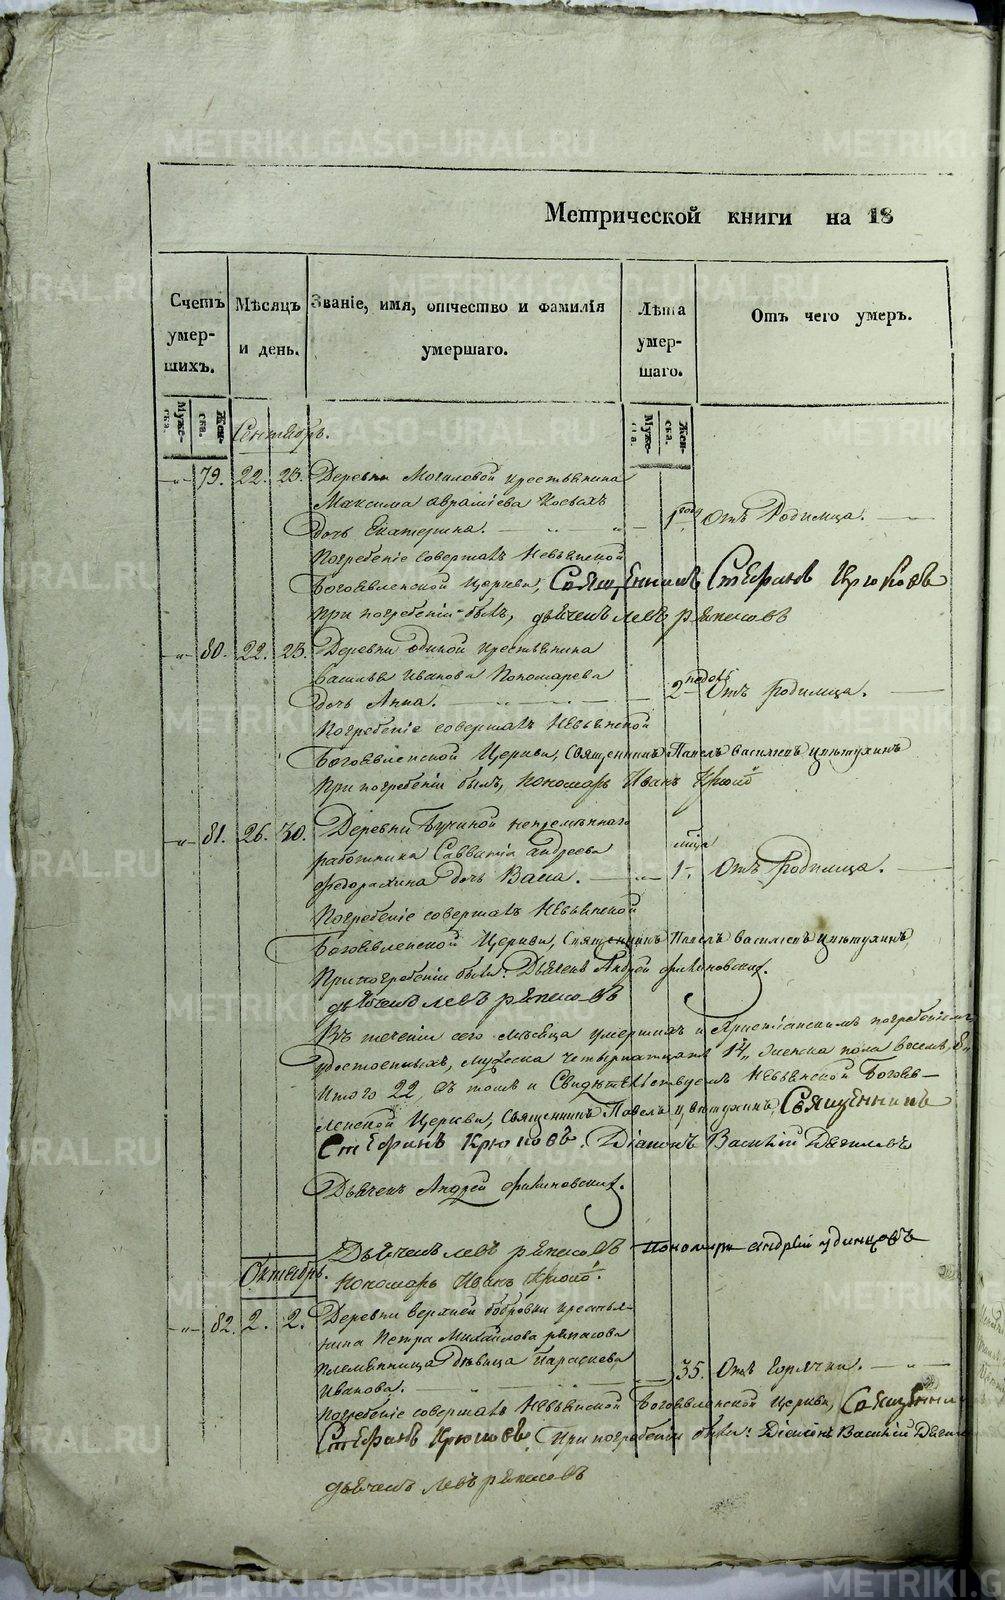 METRIKI.GASO-URAL.RU
Метрической книги на 18
Счетъ умер-шихъ.
Мѣсяцъ и день.
Званіе, имя, отчество и фамилія умершаго.
Лѣта умер-шаго.
Отъ чего умеръ.
Муже-ска.
Жен-ска.
Муже-ска.
Жен-ска.
Сентябрь.
79. 22. 25. Деревни Могиловой крестьянина
Максима Авраміева Косыхъ
дочь Екатерина. 1 году Отъ Родимца.
Погребеніе совершалъ Невьянской
Богоявленской Церкви, Священникъ Стефанъ Крюковъ
При погребеніи былъ, дьячекъ Левъ Ряпасовъ
80. 22. 25. Деревни Одиной крестьянина
Василья Иванова Пономарева
дочь Анна. 2 недѣль Отъ Родимца.
Погребеніе совершалъ Невьянской
Богоявленской Церкви, Священникъ Павелъ Васильевъ Цвѣтухинъ
При погребеніи былъ, Пономарь Иванъ
81. 26. 30. Деревни Бучиной непремѣннаго
работника Савватія Андреева
Федорахина дочь Васа. мца 1. Отъ Родимца.
Погребеніе совершалъ Невьянской
Богоявленской Церкви, Священникъ Павелъ Васильевъ Цвѣтухинъ,
При погребеніи были: Дьячекъ Андрей Фикиновскихъ.
дьячекъ Левъ Ряпасовъ
Въ теченіи сего мѣсяца умершихъ и Христіанскимъ погребеніемъ
удостоенныхъ, мужеска четырнатцать 14, женска пола восемь, 8,
Итого 22, въ томъ и Свидѣтельствуемъ Невьянской Богояв-
ленской Церкви, Священникъ Павелъ Цвѣтухинъ, Священникъ
Стефанъ Крюковъ. Діаконъ Василій
Дьячекъ Андрей Фикиновскихъ.
Дьячекъ Левъ Ряпасовъ Пономарь Андрей Удинцовъ
Октябрь.
Пономарь Иванъ
82. 2. 2. Деревни Верхней Бобровки крестья-
нина Петра Михайлова Ряпасова
племянница дѣвица Параскева
Иванова. 35. Отъ Горячки.
Погребеніе совершалъ Невьянской Богоявленской Церкви, Священникъ
Стефанъ Крюковъ. При погребеніи были: Діаконъ Василій
дьячекъ Левъ Ряпасовъ